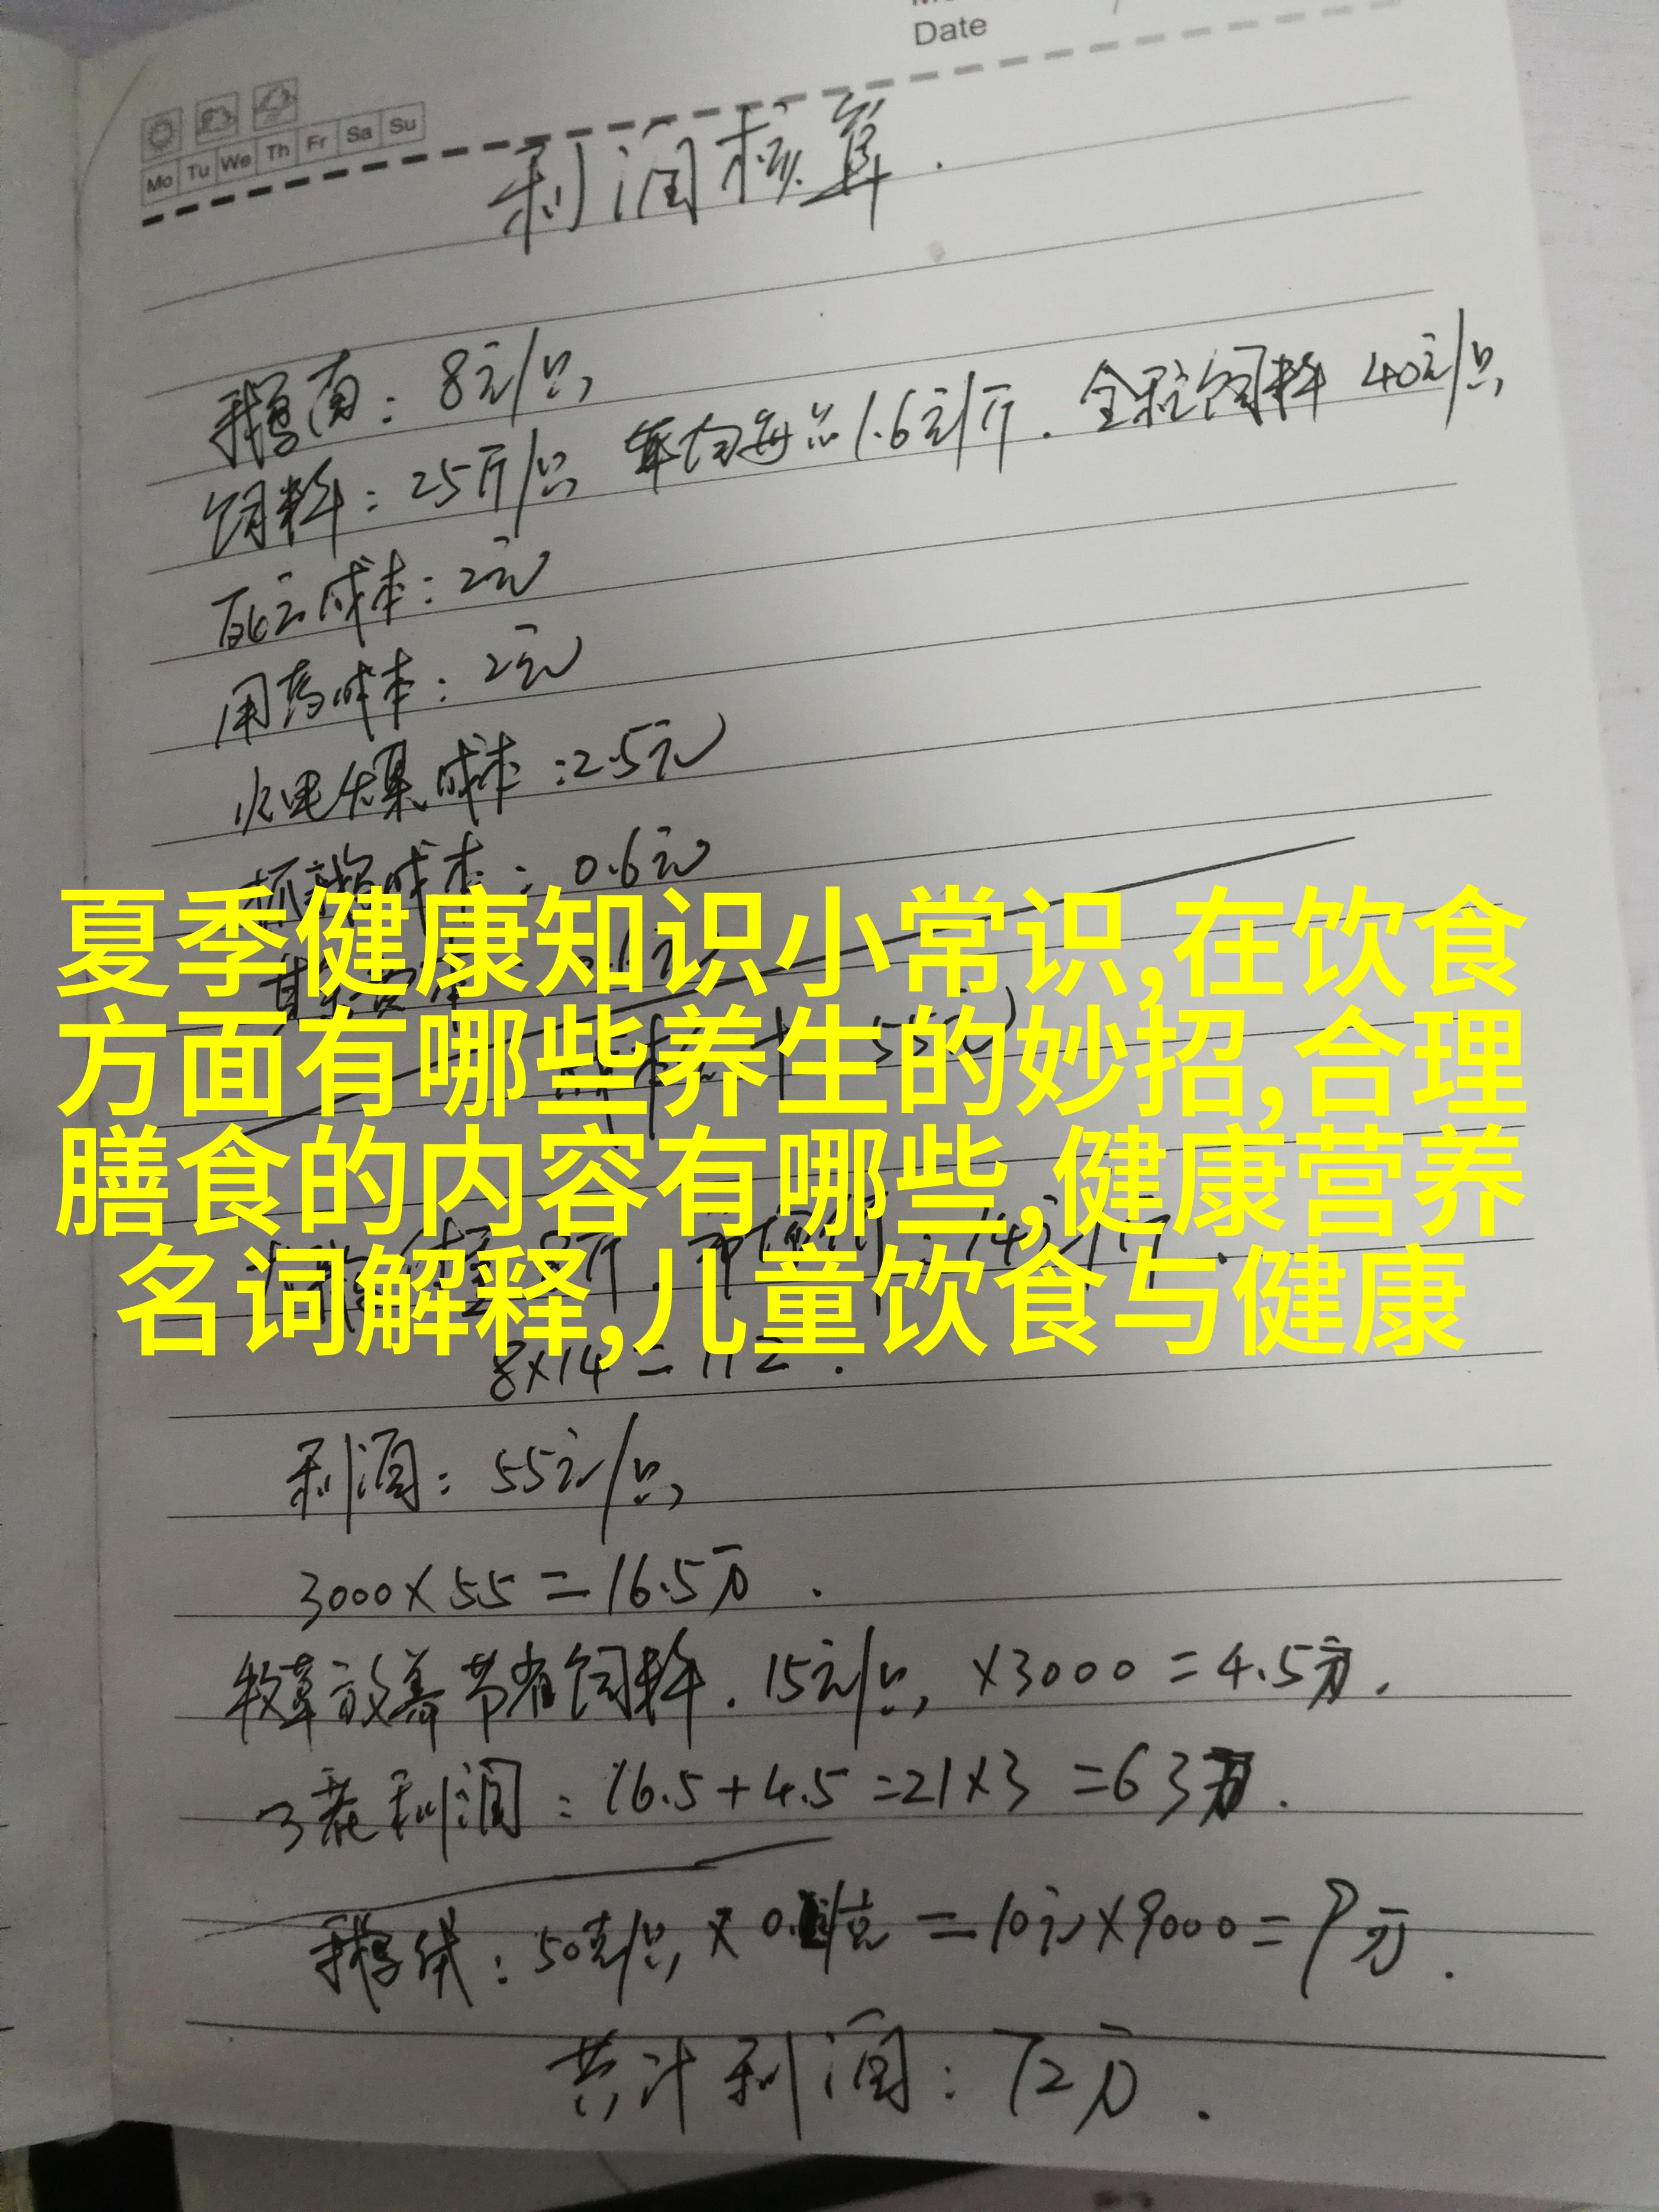 Date
Mo Tu We Th Fr Sa Su
利润核算.
鹅苗: 8元/只,
饲料: 25斤/只, 平均每斤1.6元/斤. 全程饲料 40元/只,
死亡成本: 2元
用药成本: 2元
水电煤成本: 2.5元
抓鹅成本: 0.6元
夏季健康知识小常识,在饮食
方面有哪些养生的妙招,合理
膳食的内容有哪些,健康营养
名词解释,儿童饮食与健康
8×14=112.
利润: 55元/只,
3000×55=16.5万.
牧草放养节省饲料. 15元/只, ×3000=4.5万.
3茬利润: 16.5+4.5=21×3=63万.
鹅绒: 50克/只, ×0. /克=10元×9000=9万.
共计利润: 72万.